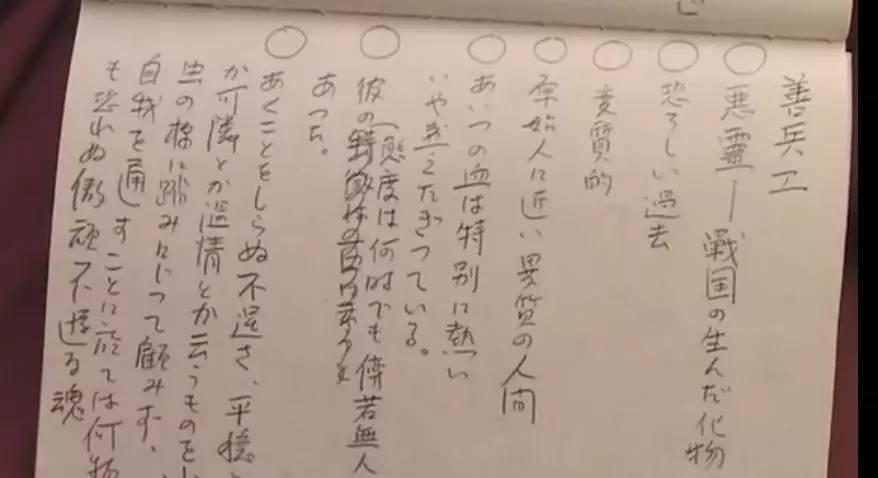 善兵エ
悪霊―戦国の生んだ化物
恐ろしい過去
変質的
原始人に近い異質の人間
あいつの血は特別に熱い
いや煮えたぎっている。
彼の態度は何時でも傍若無人
あった。
あくことをしらぬ不逞さ、平穏と
か可隣とか温情とか云うものを
虫の様に踏みにじって顧みず、
自我を通すことに於ては何物
も恐れぬ傲頑不遜る魂